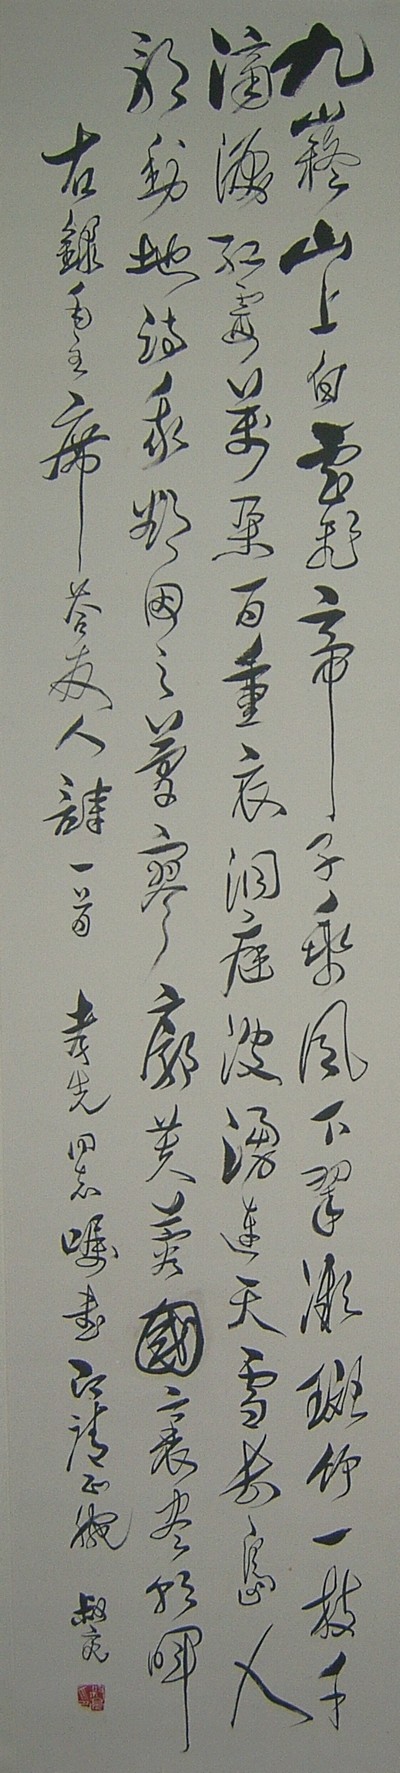 九嶷山上白雲飛帝子乘風下翠微斑竹一枝千
滴淚紅霞萬朵百重衣洞庭波湧連天雪長島人
歌動地詩我欲因之夢寥廓芙蓉國裏盡朝暉
右錄毛主席答友人詩一首 孝先同志囑書即請正腕 叔亮